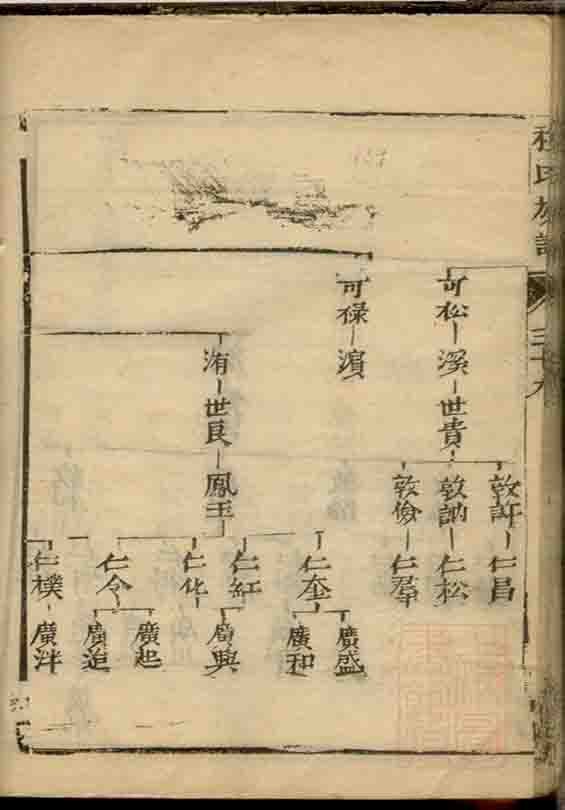 程氏族譜
三十九
可松 溪 世貴
敦訐 仁昌
敦訥 仁松
敦儉 仁羣
可祿 濱
洧 世良 鳳玉
仁奎 廣盛
廣和
仁紅 廣興
仁化
仁令 廣起
廣追
仁樸 廣泮